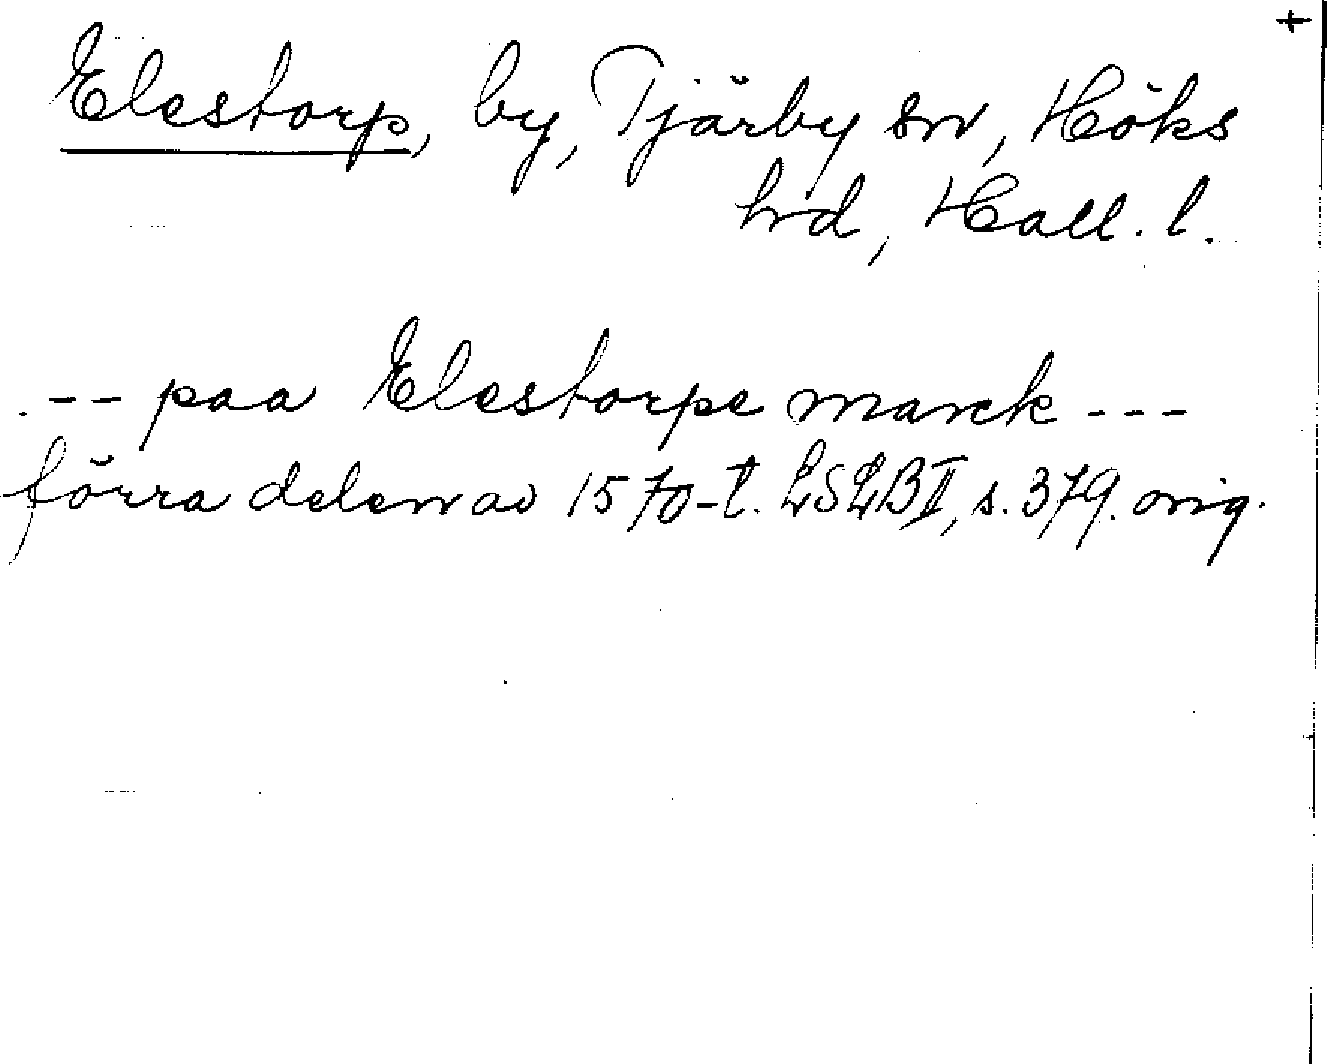 +
Elestorp, by, Tjärby sn, Höks
hd, Hall. l.
--- paa Elestorpe marck ---
förra delen av 1570-t. LSLB II, s. 379. orig.